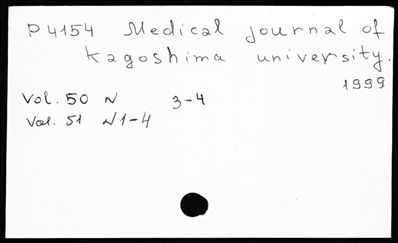 P4154 Medical journal of
Kagoshima university.
1999
Vol. 50 N 3-4
Vol. 51 N1-4